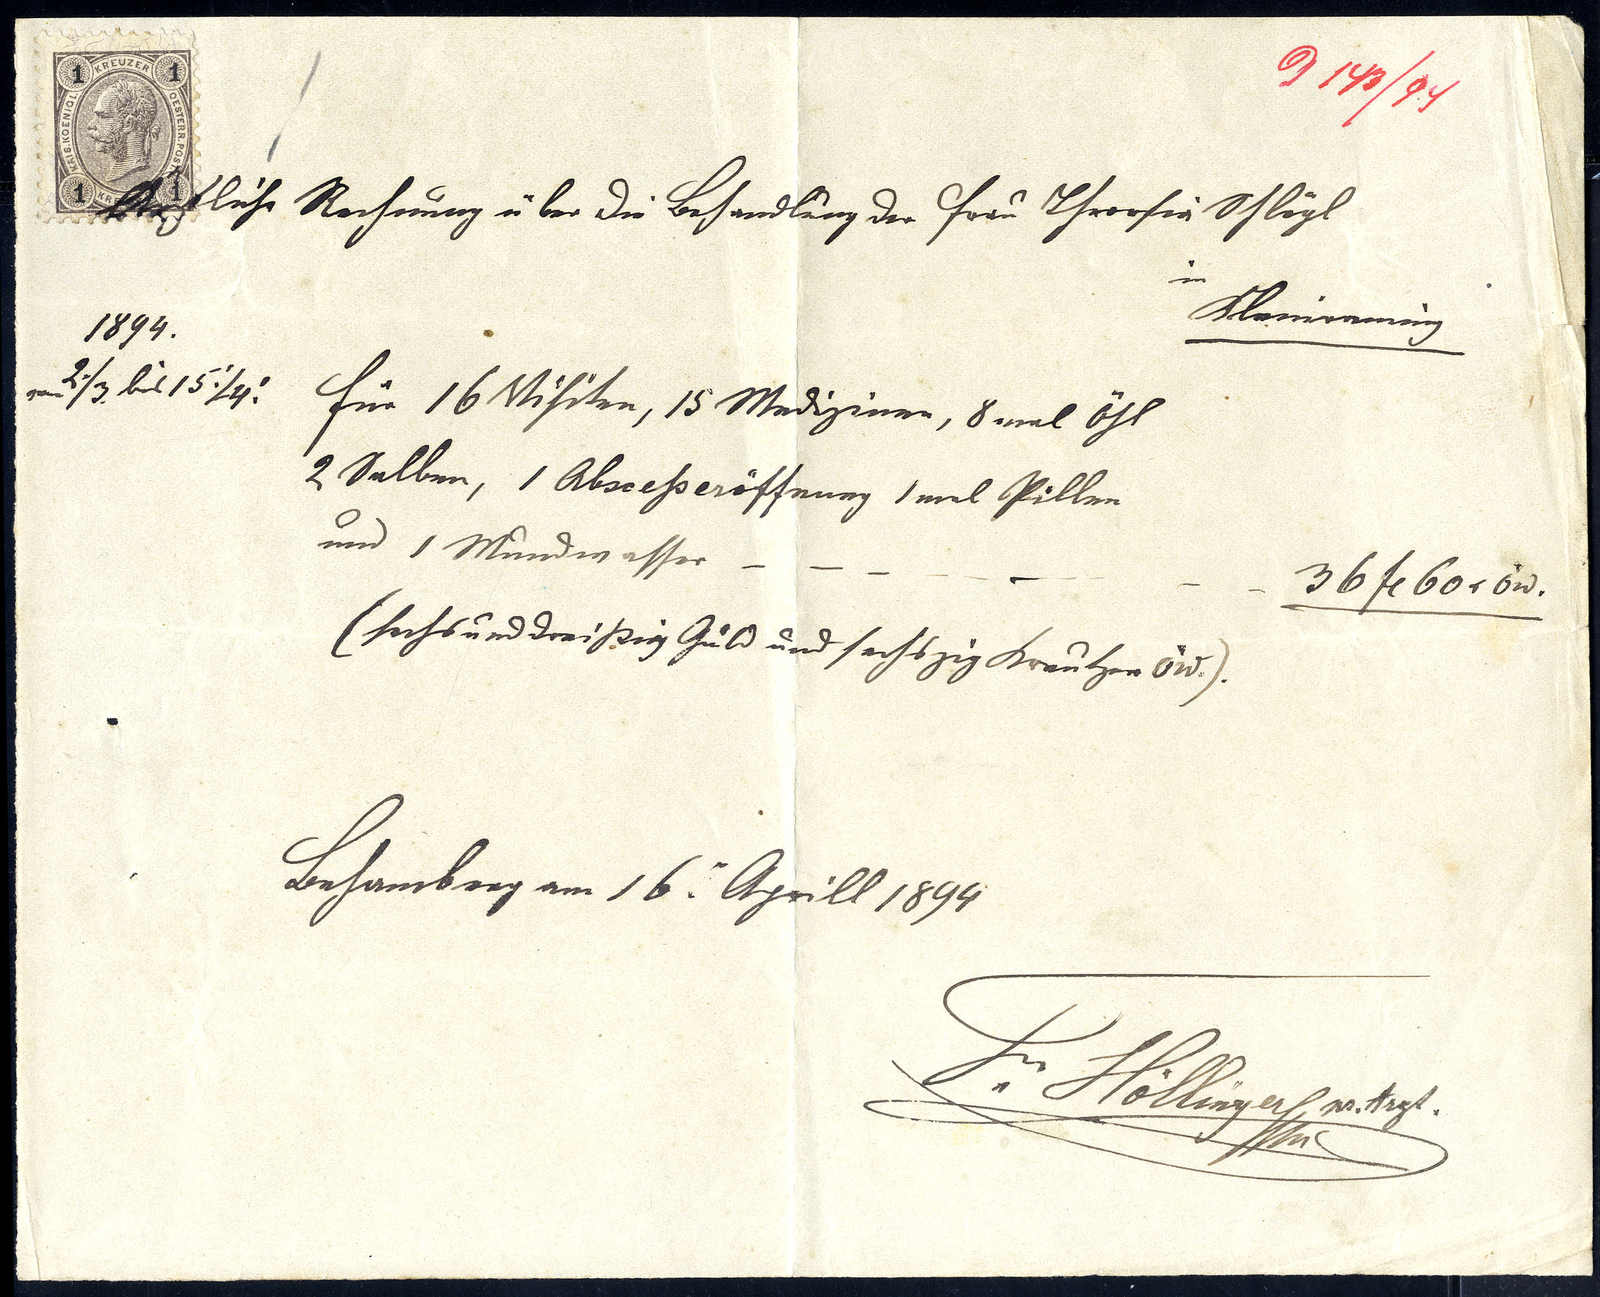 1 KREUZER 1
KAIS. KOENIGL. OESTERR. POST
1 KREUZER 1
D 143/94
Ärztliche Rechnung über die Behandlung der Frau Theresia Schlögl
in
Kleinraming
1894.
vom 2./3. bis 15./4.
für 16 Visiten, 15 Medizinen, 8 mal Öhl
2 Salben, 1 Absceßeröffnung 1 mal Pillen
und 1 Mundwasser — — — — — — — 36 fl 60 x öw.
(sechsunddreißig Guld und sechszig Kreutzer öw.).
Behamberg am 16. Aprill 1894
Fr. Höllinger Arzt.